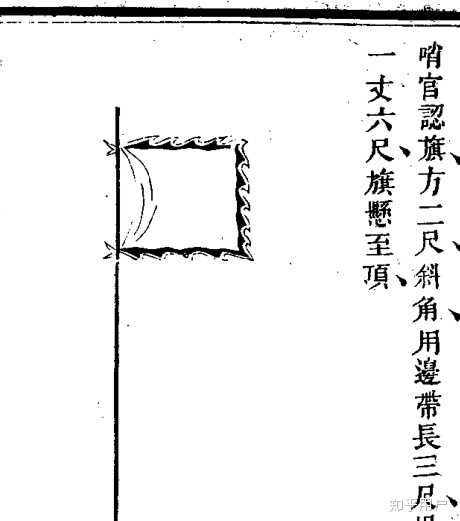 哨官認旗、方二尺、斜角、用邊帶長三尺、
一丈六尺、旗懸至頂、
知乎用户